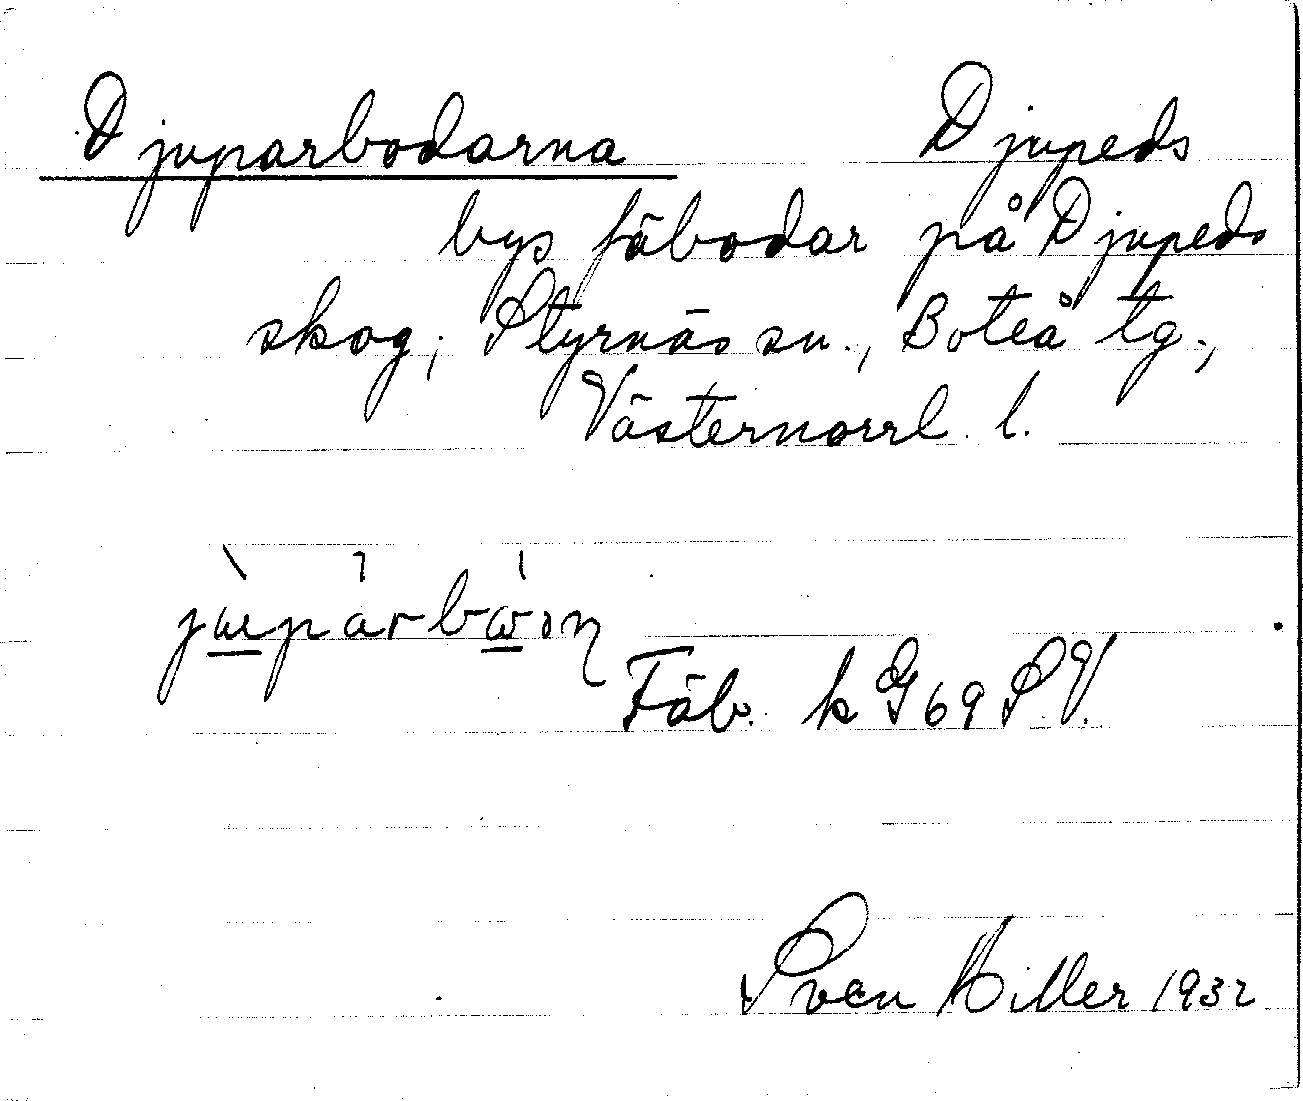 Djuparbodarna Djupeds
bys fäbodar på Djupeds
skog, Styrnäs sn., Boteå tg.,
Västernorrl. l.
Fäb. k G69 SV.
Sven Hiller 1932